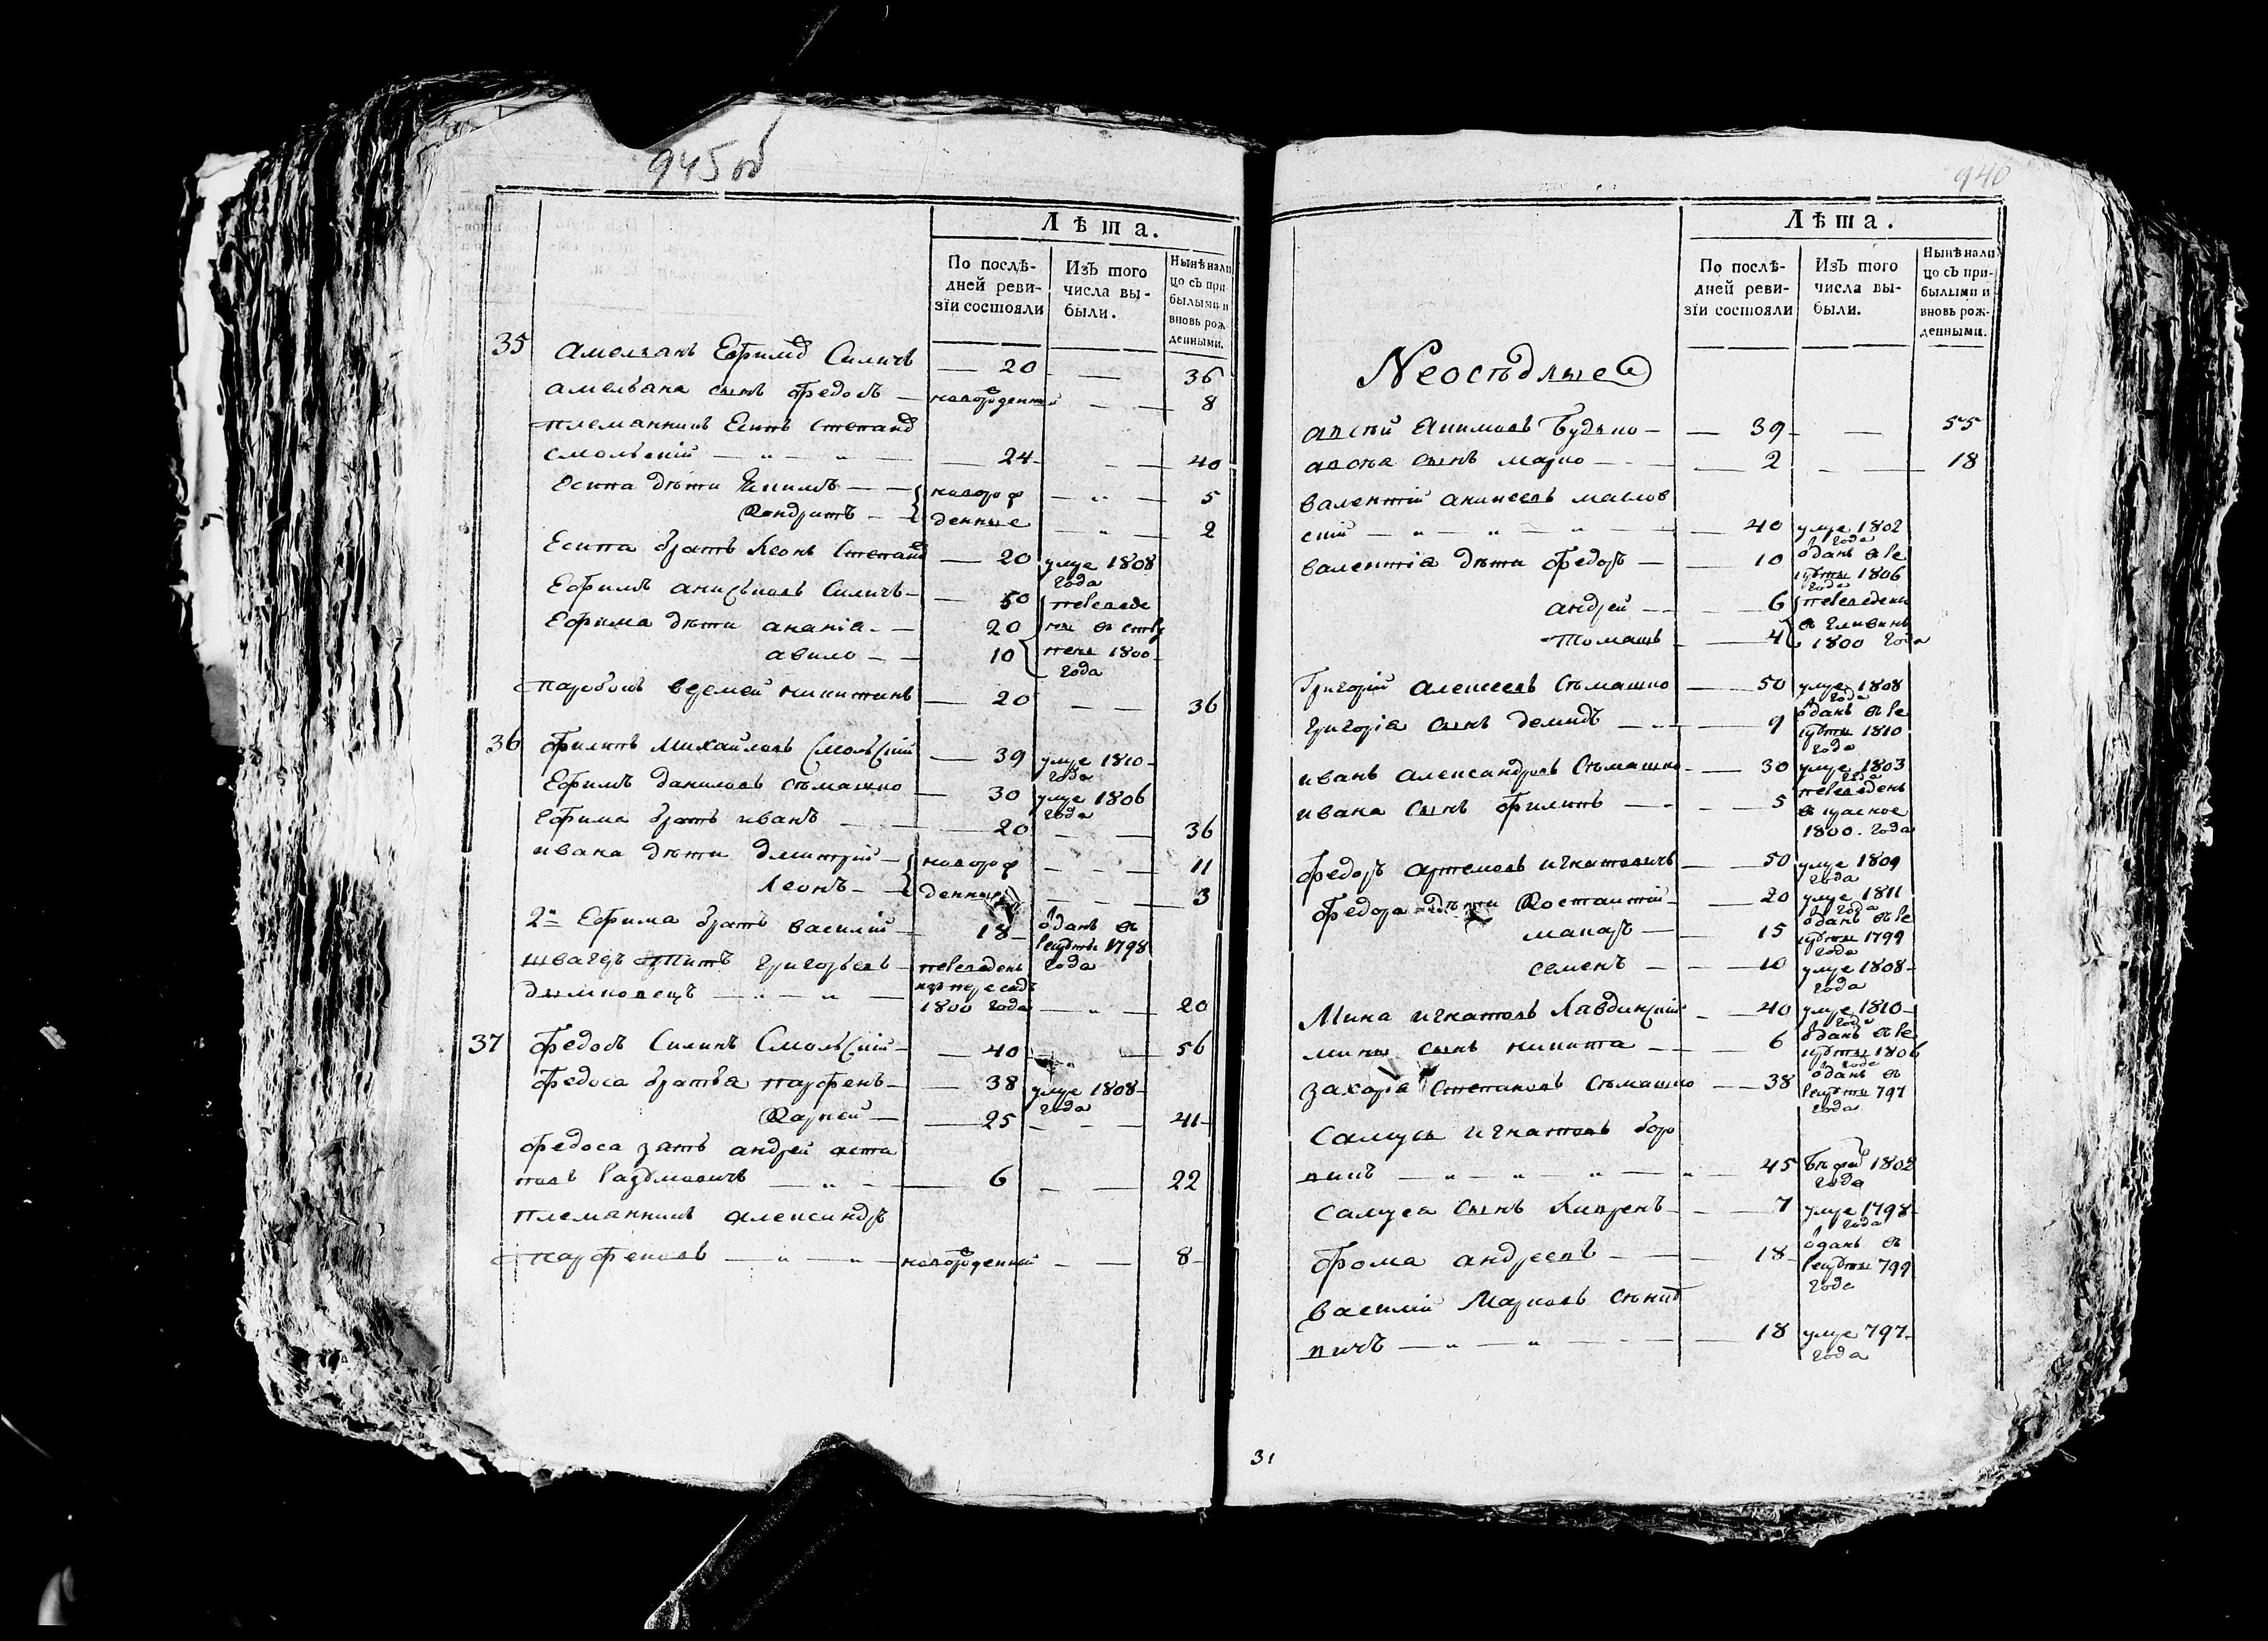 945 об
Лѣта.
По послѣ-
дней реви-
зіи состояли
Изъ того
числа вы-
были.
Нынѣ нали
цо съ при
былыми и
вновь рож
денными.
35 Амелянъ Ефимо Силичъ — 20 — 36
Амельяна сынъ Федосъ — новорожденный — 8
племянникъ Есипъ Степано
Смольскій — „ — „ — 24 — 40
Есипа дѣти Якимъ — новорож — „ — 5
Кондратъ — денные — „ — 2
Есипа братъ Леонъ Степано — 20 умре 1808
года
Ефимъ Анисъковъ Силичъ — 50 переведе
Ефима дѣти Ананія — 20
Авило — 10 1800
года
паробокъ Еремей Никитинъ — 20 — 36
36 Филипъ Михайловъ Смольскій — 39 умре 1810
года
Ефимъ Даниловъ Сѣмашко — 30 умре 1806
года
Ефима братъ Иванъ — 20 — 36
Ивана дѣти Дмитрій — новорож — 11
Леонъ — денные — 3
2й Ефима братъ Василій — 18 одань въ
рекруты 1798
года
швагеръ Григорьевъ — переведенъ
дымковецъ — „ — „ — 1800 года — „ — 20
37 Федосъ Силинъ Смольскій — 40 — 56
Федоса братья Парфенъ — 38 умре 1808
года
Карней — 25 — 41
Федоса зять Андрей Аста
повъ — „ — 6 — 22
племянникъ Александръ
Парфеновъ — „ — „ — новорожденный — 8
940
Лѣта.
По послѣ-
дней реви-
зіи состояли
Изъ того
числа вы-
были.
Нынѣ нали
цо съ при-
былыми и
вновь рож-
денными.
Неосѣдлые
Авсѣй Якимовъ Будько — 39 — 55
Авсѣя сынъ Марко — 2 — 18
Валентій Аникеевъ Маслов
скій — „ — „ — „ — 40 умре 1802
года
Валентія дѣти Федоръ — 10 одань въ ре
круты 1806
года
Андрей — 6 переведены
Томашъ — 4 1800 года
Григорій Алексеевъ Сѣмашко — 50 умре 1808
года
Григорія сынъ Демидъ — 9 одань въ ре
круты 1810
года
Иванъ Александровъ Сѣмашко — 30 умре 1803
года
Ивана сынъ Филипъ — 5 переведенъ
в красное
1800. года
Федоръ Артемовъ Игнатовичъ — 50 умре 1809
года
Федора дѣти Костантій — 20 умре 1811
года
Макаръ — 15 одань въ ре
круты 1799
года
Семенъ — 10 умре 1808
года
Мина Игнатовъ Лавдинскій — 40 умре 1810
года
Мины сынъ Никита — 6 одань въ ре
круты 1806
года
Захарія Степановъ Сѣмашко — 38 одань въ
рекруты 797
года
Самуся Игнатовъ Бор
— „ — „ — „ — „ — 45 1802
года
Самуся сынъ Кипренъ — 7 умре 1798
года
Фома Андреевъ — 18 одань въ
рекруты 799
года
Василій Марковъ
вичъ — „ — „ — 18 умре 797
года
31